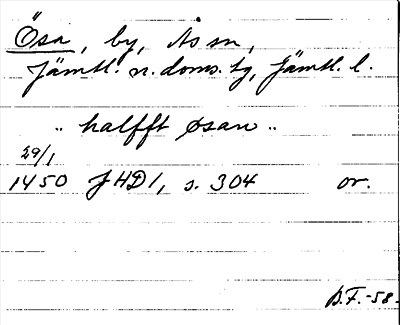 Ösa, by, Ås sn,
Jämtl. n. doms. tg, Jämtl. l.
„ halfft øsan „
29/1
1450 JHD1, s. 304 or.
D.F. -58-